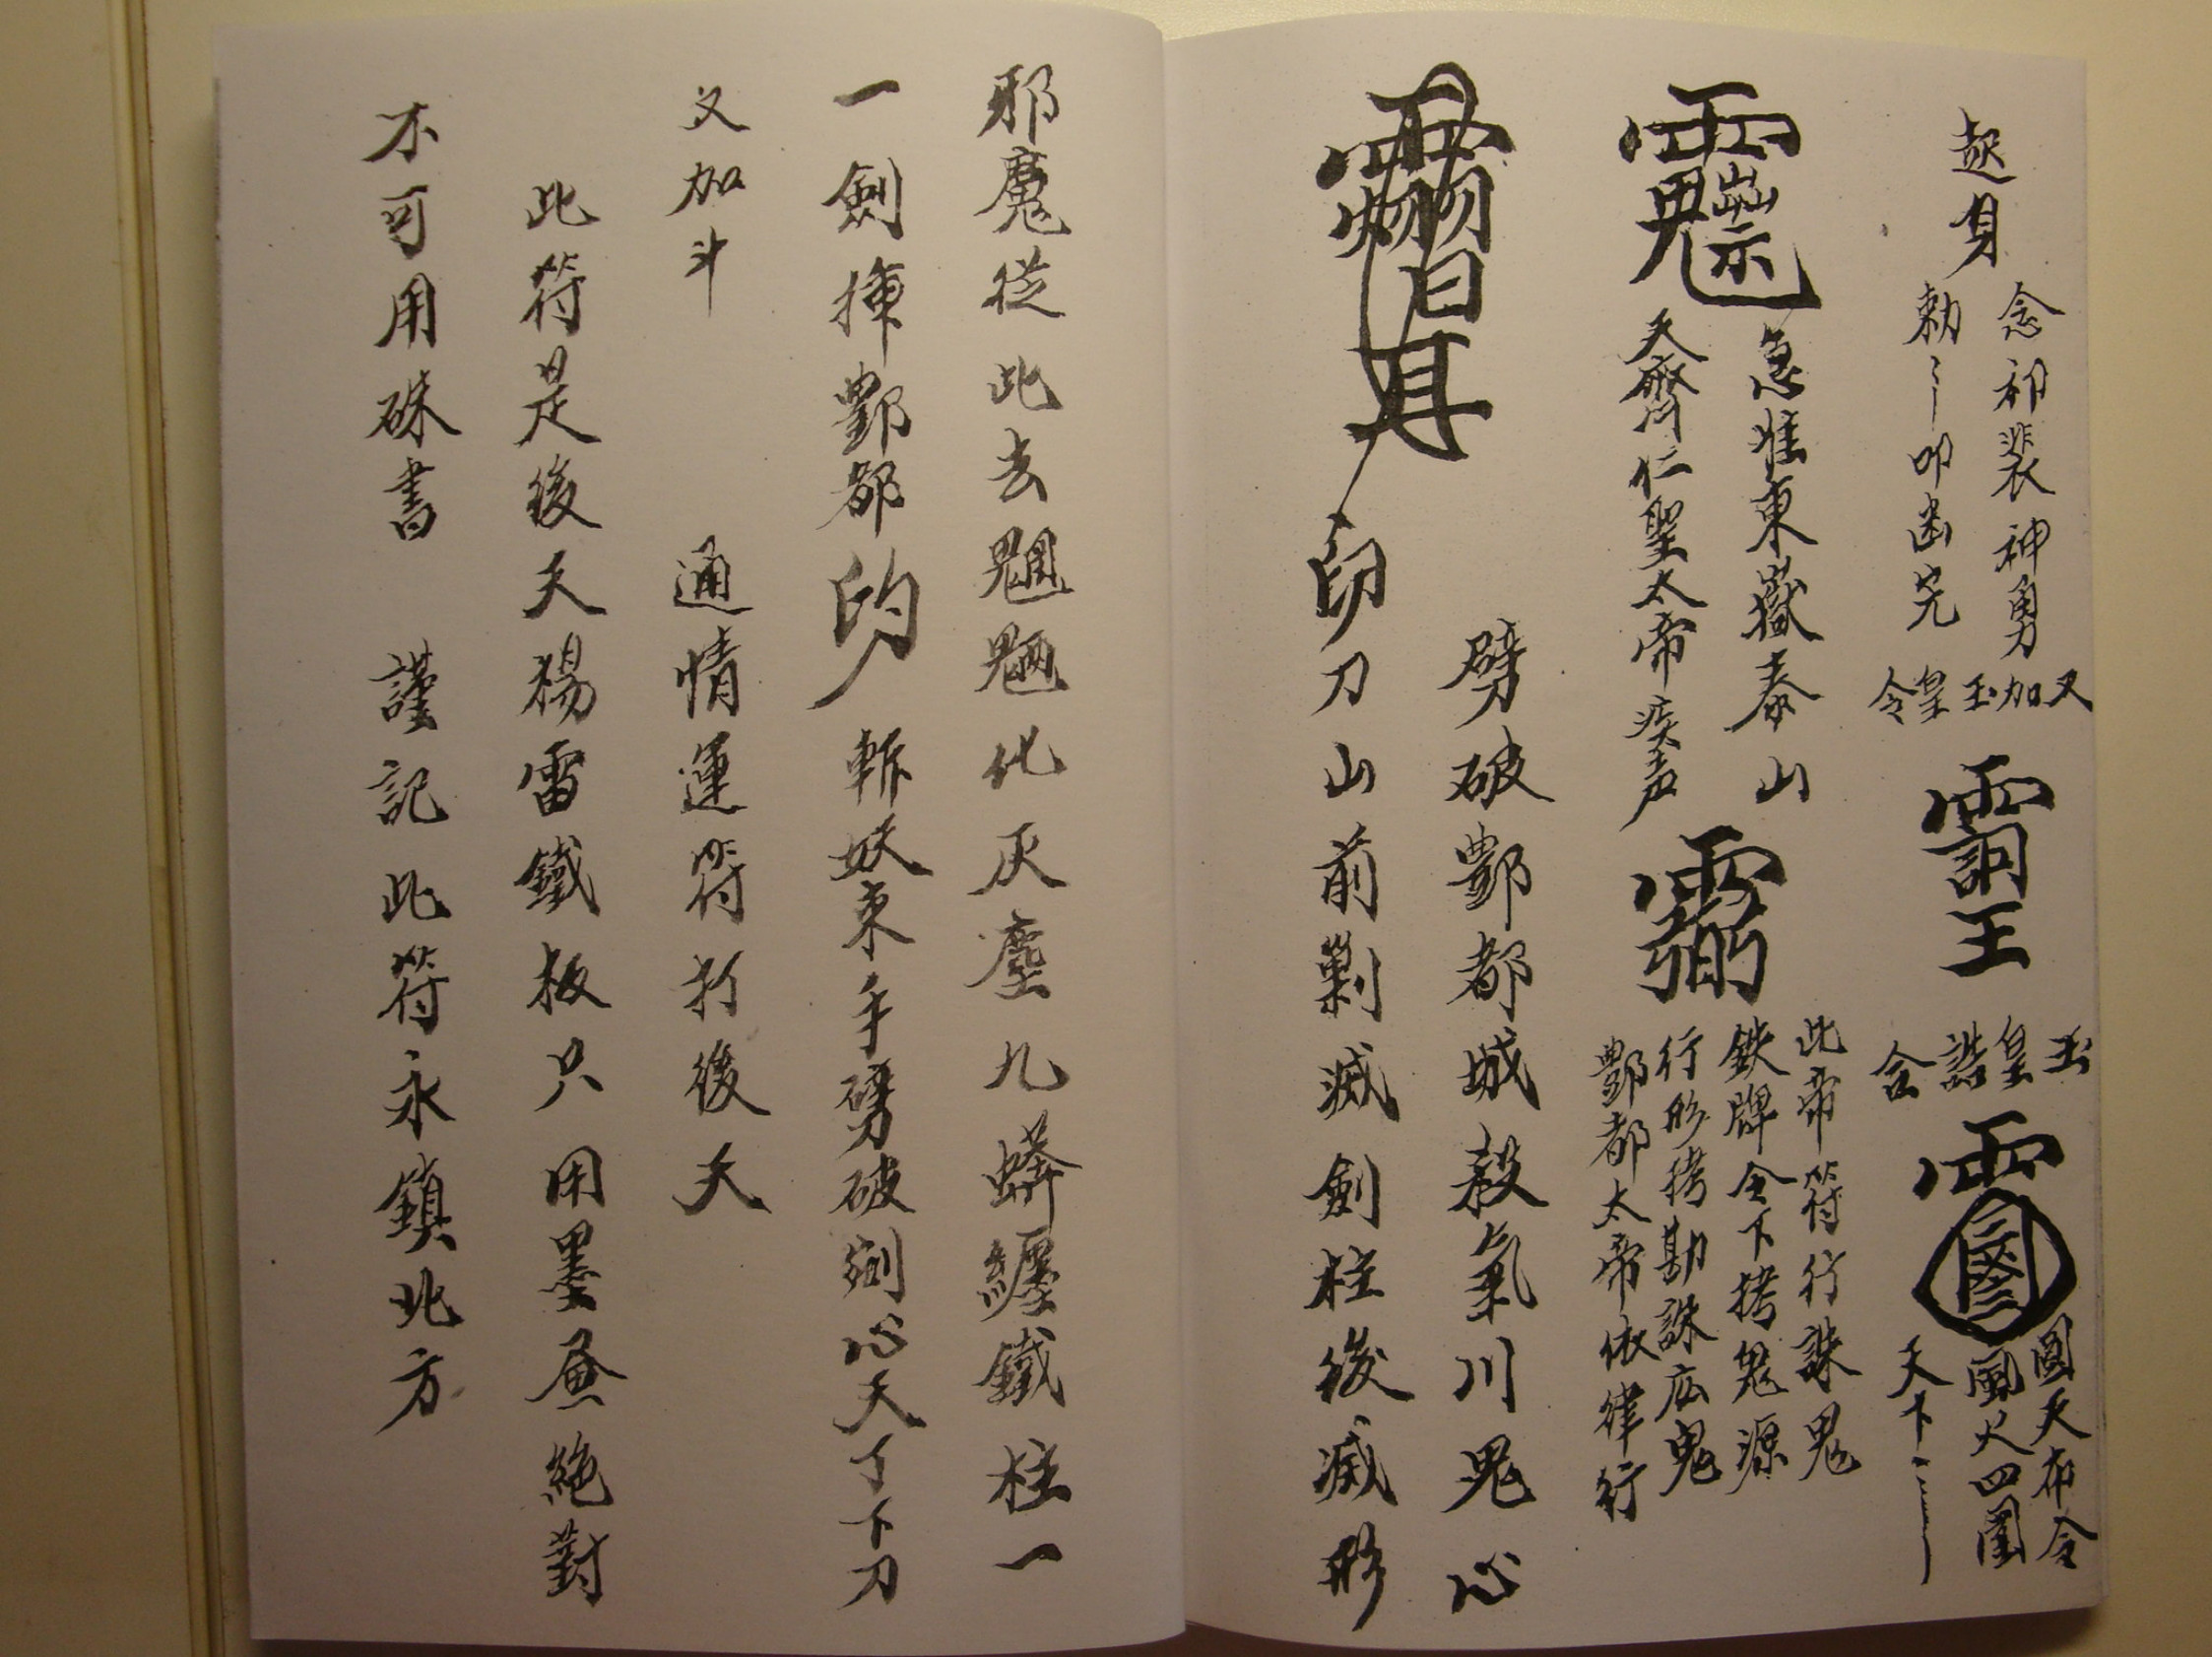 起身
念祁裴神勇
勅
又加玉皇令
玉皇誥令
圓天布令
風火四圍
天下
急准東嶽泰山
天齊仁聖太帝疾声
此帝符行誅鬼
鉄牌令下拷鬼源
行形拷勘誅広鬼
酆都太帝依律行
劈破酆都城殺氣川鬼心
刀山前剿滅劍柱後滅形
邪魔從此去魍魎化灰塵九蟒纏鐵柱一
一劍揮酆都 斬妖束手劈破 心天丁下刀
又加斗 通情運符打後天
此符是後天楊雷鐵板只用墨 絶對
不可用硃書 謹記此符永鎮北方